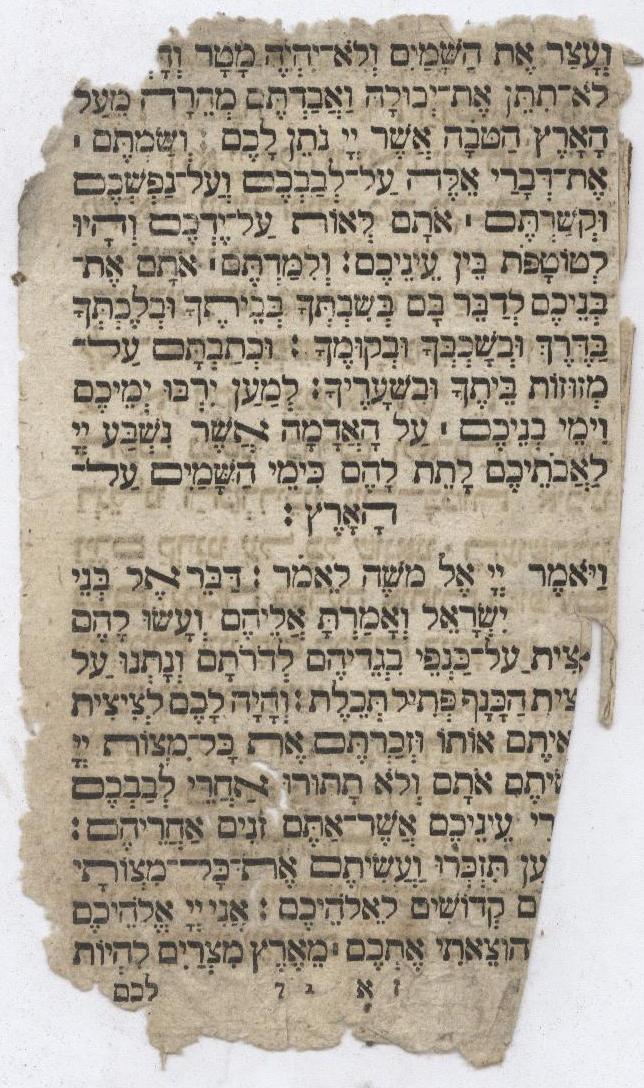 וְעָצַר אֶת הַשָּׁמַיִם וְלֹא־יִהְיֶה מָטָר
לֹא־תִתֵּן אֶת־יְבוּלָהּ וַאֲבַדְתֶּם מְהֵרָה מֵעַל
הָאָרֶץ הַטֹּבָה אֲשֶׁר יְיָ נֹתֵן לָכֶם : וְשַׂמְתֶּם ·
אֶת־דְּבָרַי אֵלֶּה עַל־לְבַבְכֶם וְעַל־נַפְשְׁכֶם
וּקְשַׁרְתֶּם · אֹתָם לְאוֹת עַל־יֶדְכֶם וְהָיוּ
לְטוֹטָפֹת בֵּין עֵינֵיכֶם : וְלִמַּדְתֶּם · אֹתָם אֶת־
בְּנֵיכֶם לְדַבֵּר בָּם בְּשִׁבְתְּךָ בְּבֵיתֶךָ וּבְלֶכְתְּךָ
בַדֶּרֶךְ וּבְשָׁכְבְּךָ וּבְקוּמֶךָ : וּכְתַבְתָּם עַל־
מְזוּזוֹת בֵּיתֶךָ וּבִשְׁעָרֶיךָ : לְמַעַן יִרְבּוּ יְמֵיכֶם
וִימֵי בְנֵיכֶם · עַל הָאֲדָמָה אֲשֶׁר נִשְׁבַּע יְיָ
לַאֲבֹתֵיכֶם לָתֵת לָהֶם כִּימֵי הַשָּׁמַיִם עַל־
הָאָרֶץ :
וַיֹּאמֶר יְיָ אֶל מֹשֶׁה לֵּאמֹר : דַּבֵּר אֶל בְּנֵי
יִשְׂרָאֵל וְאָמַרְתָּ אֲלֵיהֶם וְעָשׂוּ לָהֶם
צִית עַל־כַּנְפֵי בִגְדֵיהֶם לְדֹרֹתָם וְנָתְנוּ עַל
צִית הַכָּנָף פְּתִיל תְּכֵלֶת : וְהָיָה לָכֶם לְצִיצִית
אִיתֶם אוֹתוֹ וּזְכַרְתֶּם אֶת כָּל־מִצְוֹת יְיָ
שִׂיתֶם אֹתָם וְלֹא תָתוּרוּ אַחֲרֵי לְבַבְכֶם
רֵי עֵינֵיכֶם אֲשֶׁר־אַתֶּם זֹנִים אַחֲרֵיהֶם :
עַן תִּזְכְּרוּ וַעֲשִׂיתֶם אֶת־כָּל־מִצְוֹתָי
ם קְדוֹשִׁים לֵאלֹהֵיכֶם : אֲנִי יְיָ אֱלֹהֵיכֶם
הוֹצֵאתִי אֶתְכֶם · מֵאֶרֶץ מִצְרַיִם לִהְיוֹת
ז א ג ד לכם